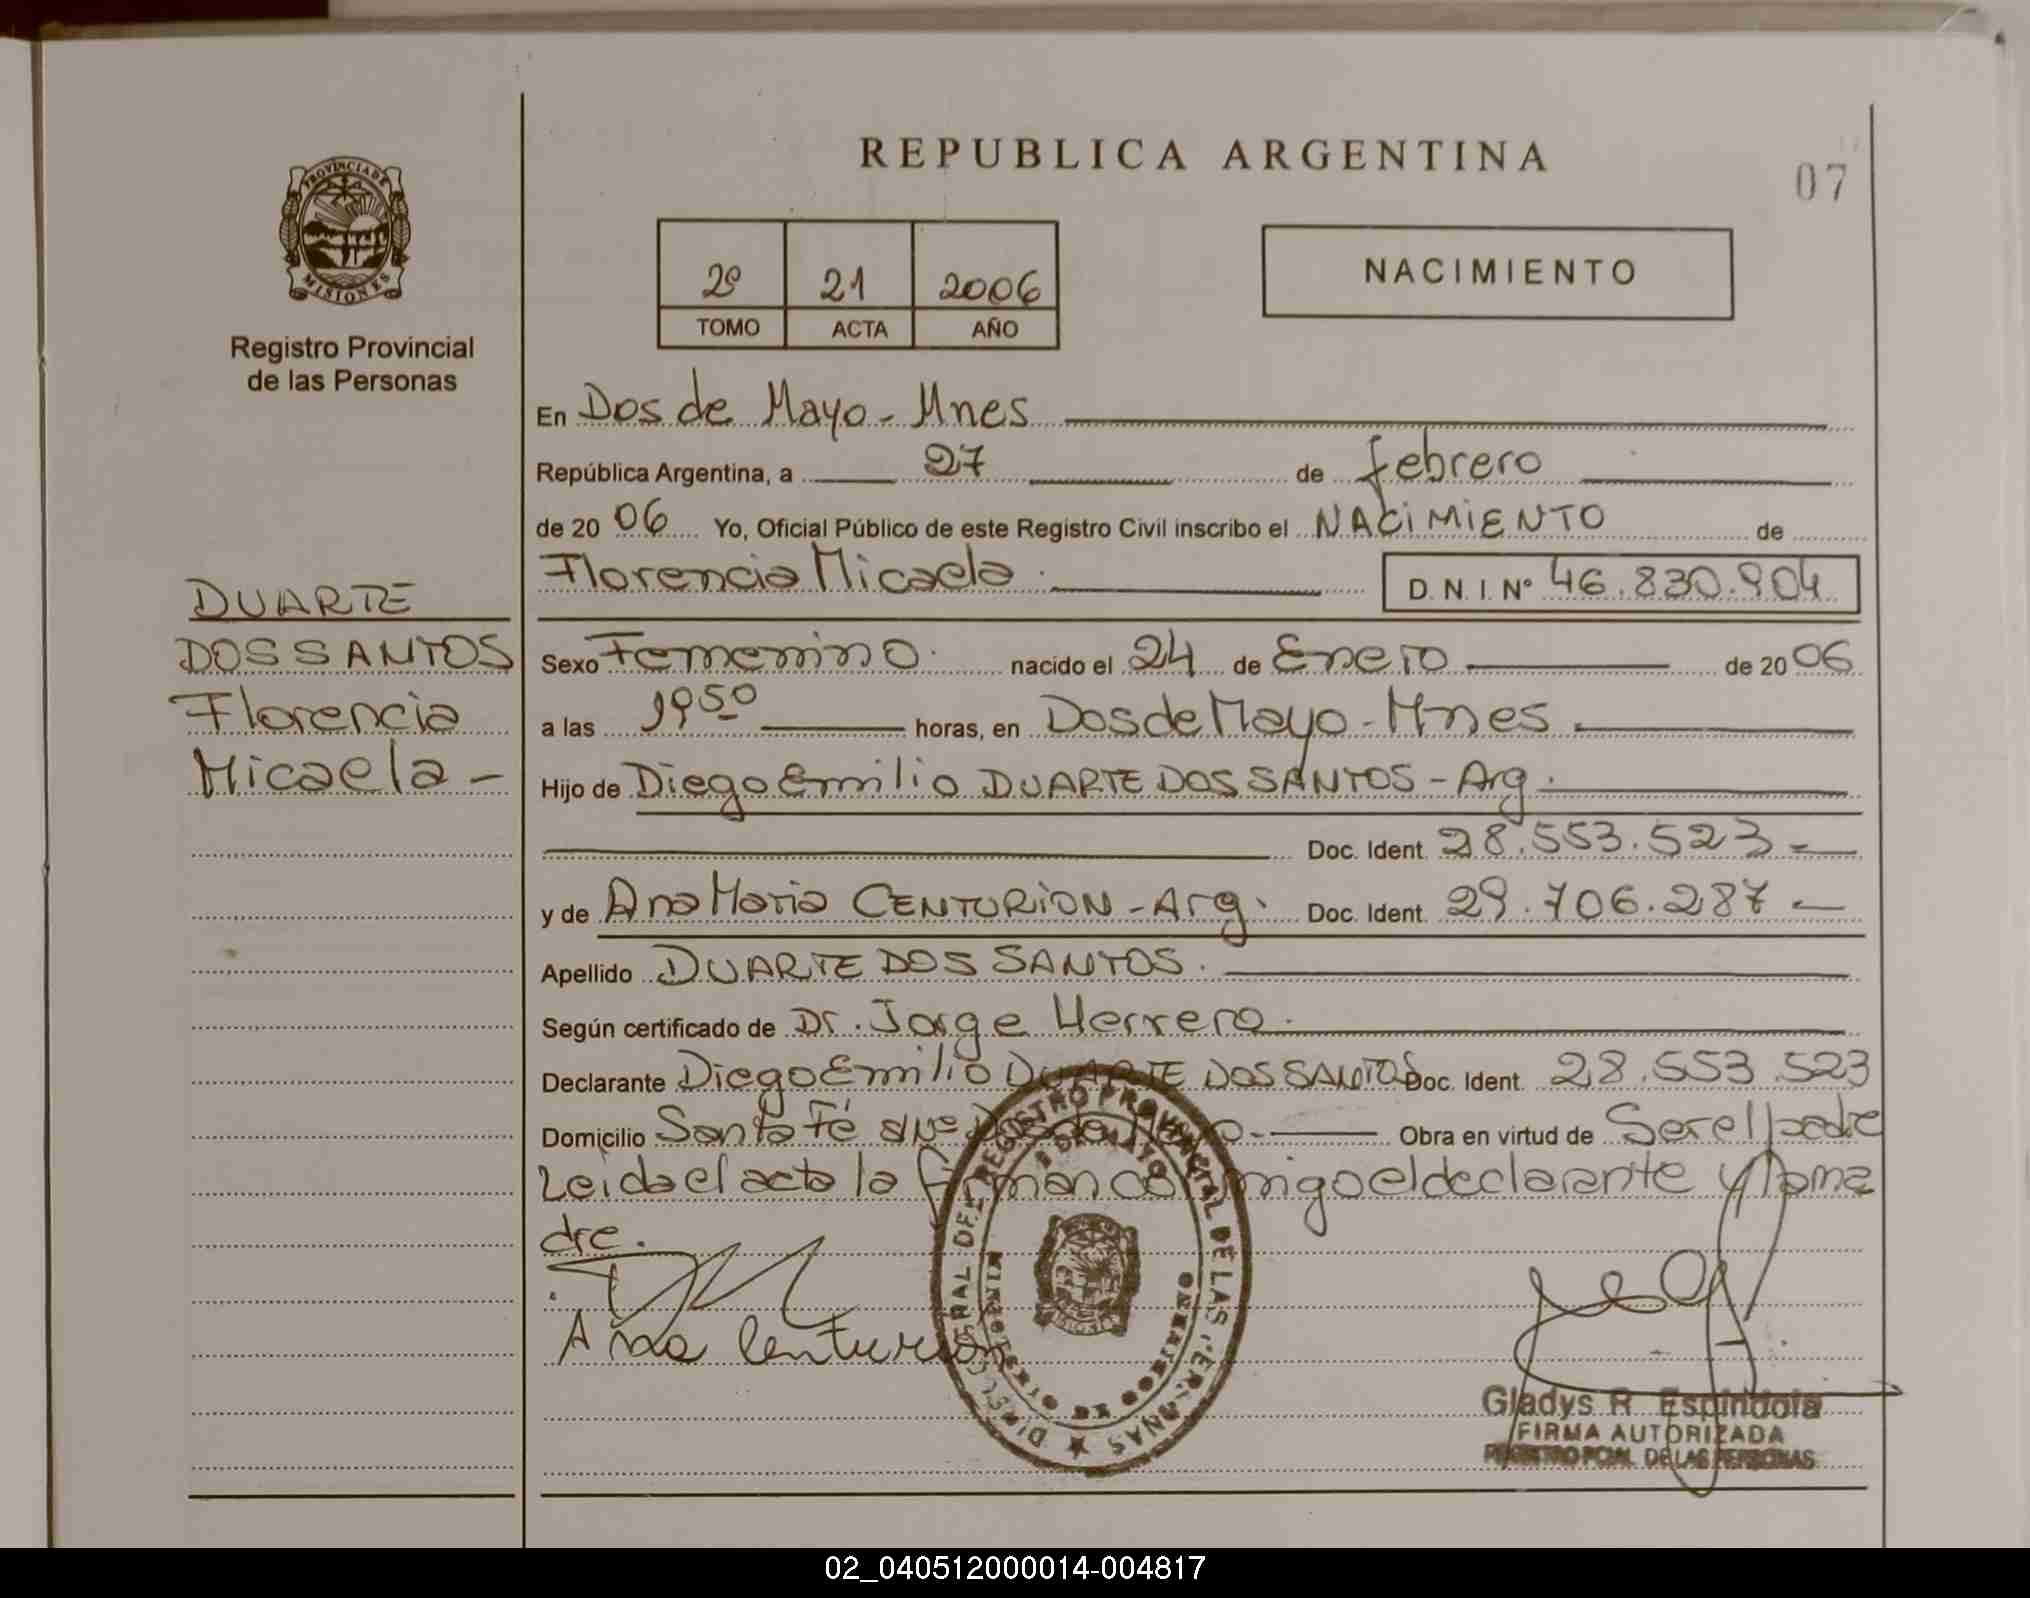 REPUBLICA ARGENTINA
07
PROVINCIA DE
MISIONES
Registro Provincial
de las Personas
2º 21 2006
TOMO ACTA AÑO
NACIMIENTO
En Dos de Mayo - Mnes
República Argentina, a 27 de febrero
de 20 06 Yo, Oficial Público de este Registro Civil inscribo el NACIMIENTO de
Florencia Micaela. D. N. I. Nº 46.830.904
DUARTE
DOS SANTOS
Florencia
Micaela -
Sexo Femenino. nacido el 24 de Enero de 20 06
a las 19 50 horas, en Dos de Mayo - Mnes.
Hijo de Diego Emilio DUARTE DOS SANTOS - Arg.
Doc. Ident. 28.553.523 -
y de Ana Maria CENTURION - Arg. Doc. Ident. 29.706.287 -
Apellido DUARTE DOS SANTOS.
Según certificado de Dr. Jorge Herrera.
Declarante Diego Emilio DUARTE DOS SANTOS Doc. Ident. 28.553.523
Domicilio Santa Fé s/Nº Dos de Mayo - Obra en virtud de Ser el padre
Leida el acta la firman conmigo el declarante y la ma
dre.
Ana Centurion
REGISTRO PROVINCIAL DE LAS
Gladys R. Espindola
FIRMA AUTORIZADA
REGISTRO PCIAL. DE LAS PERSONAS
02_040512000014-004817